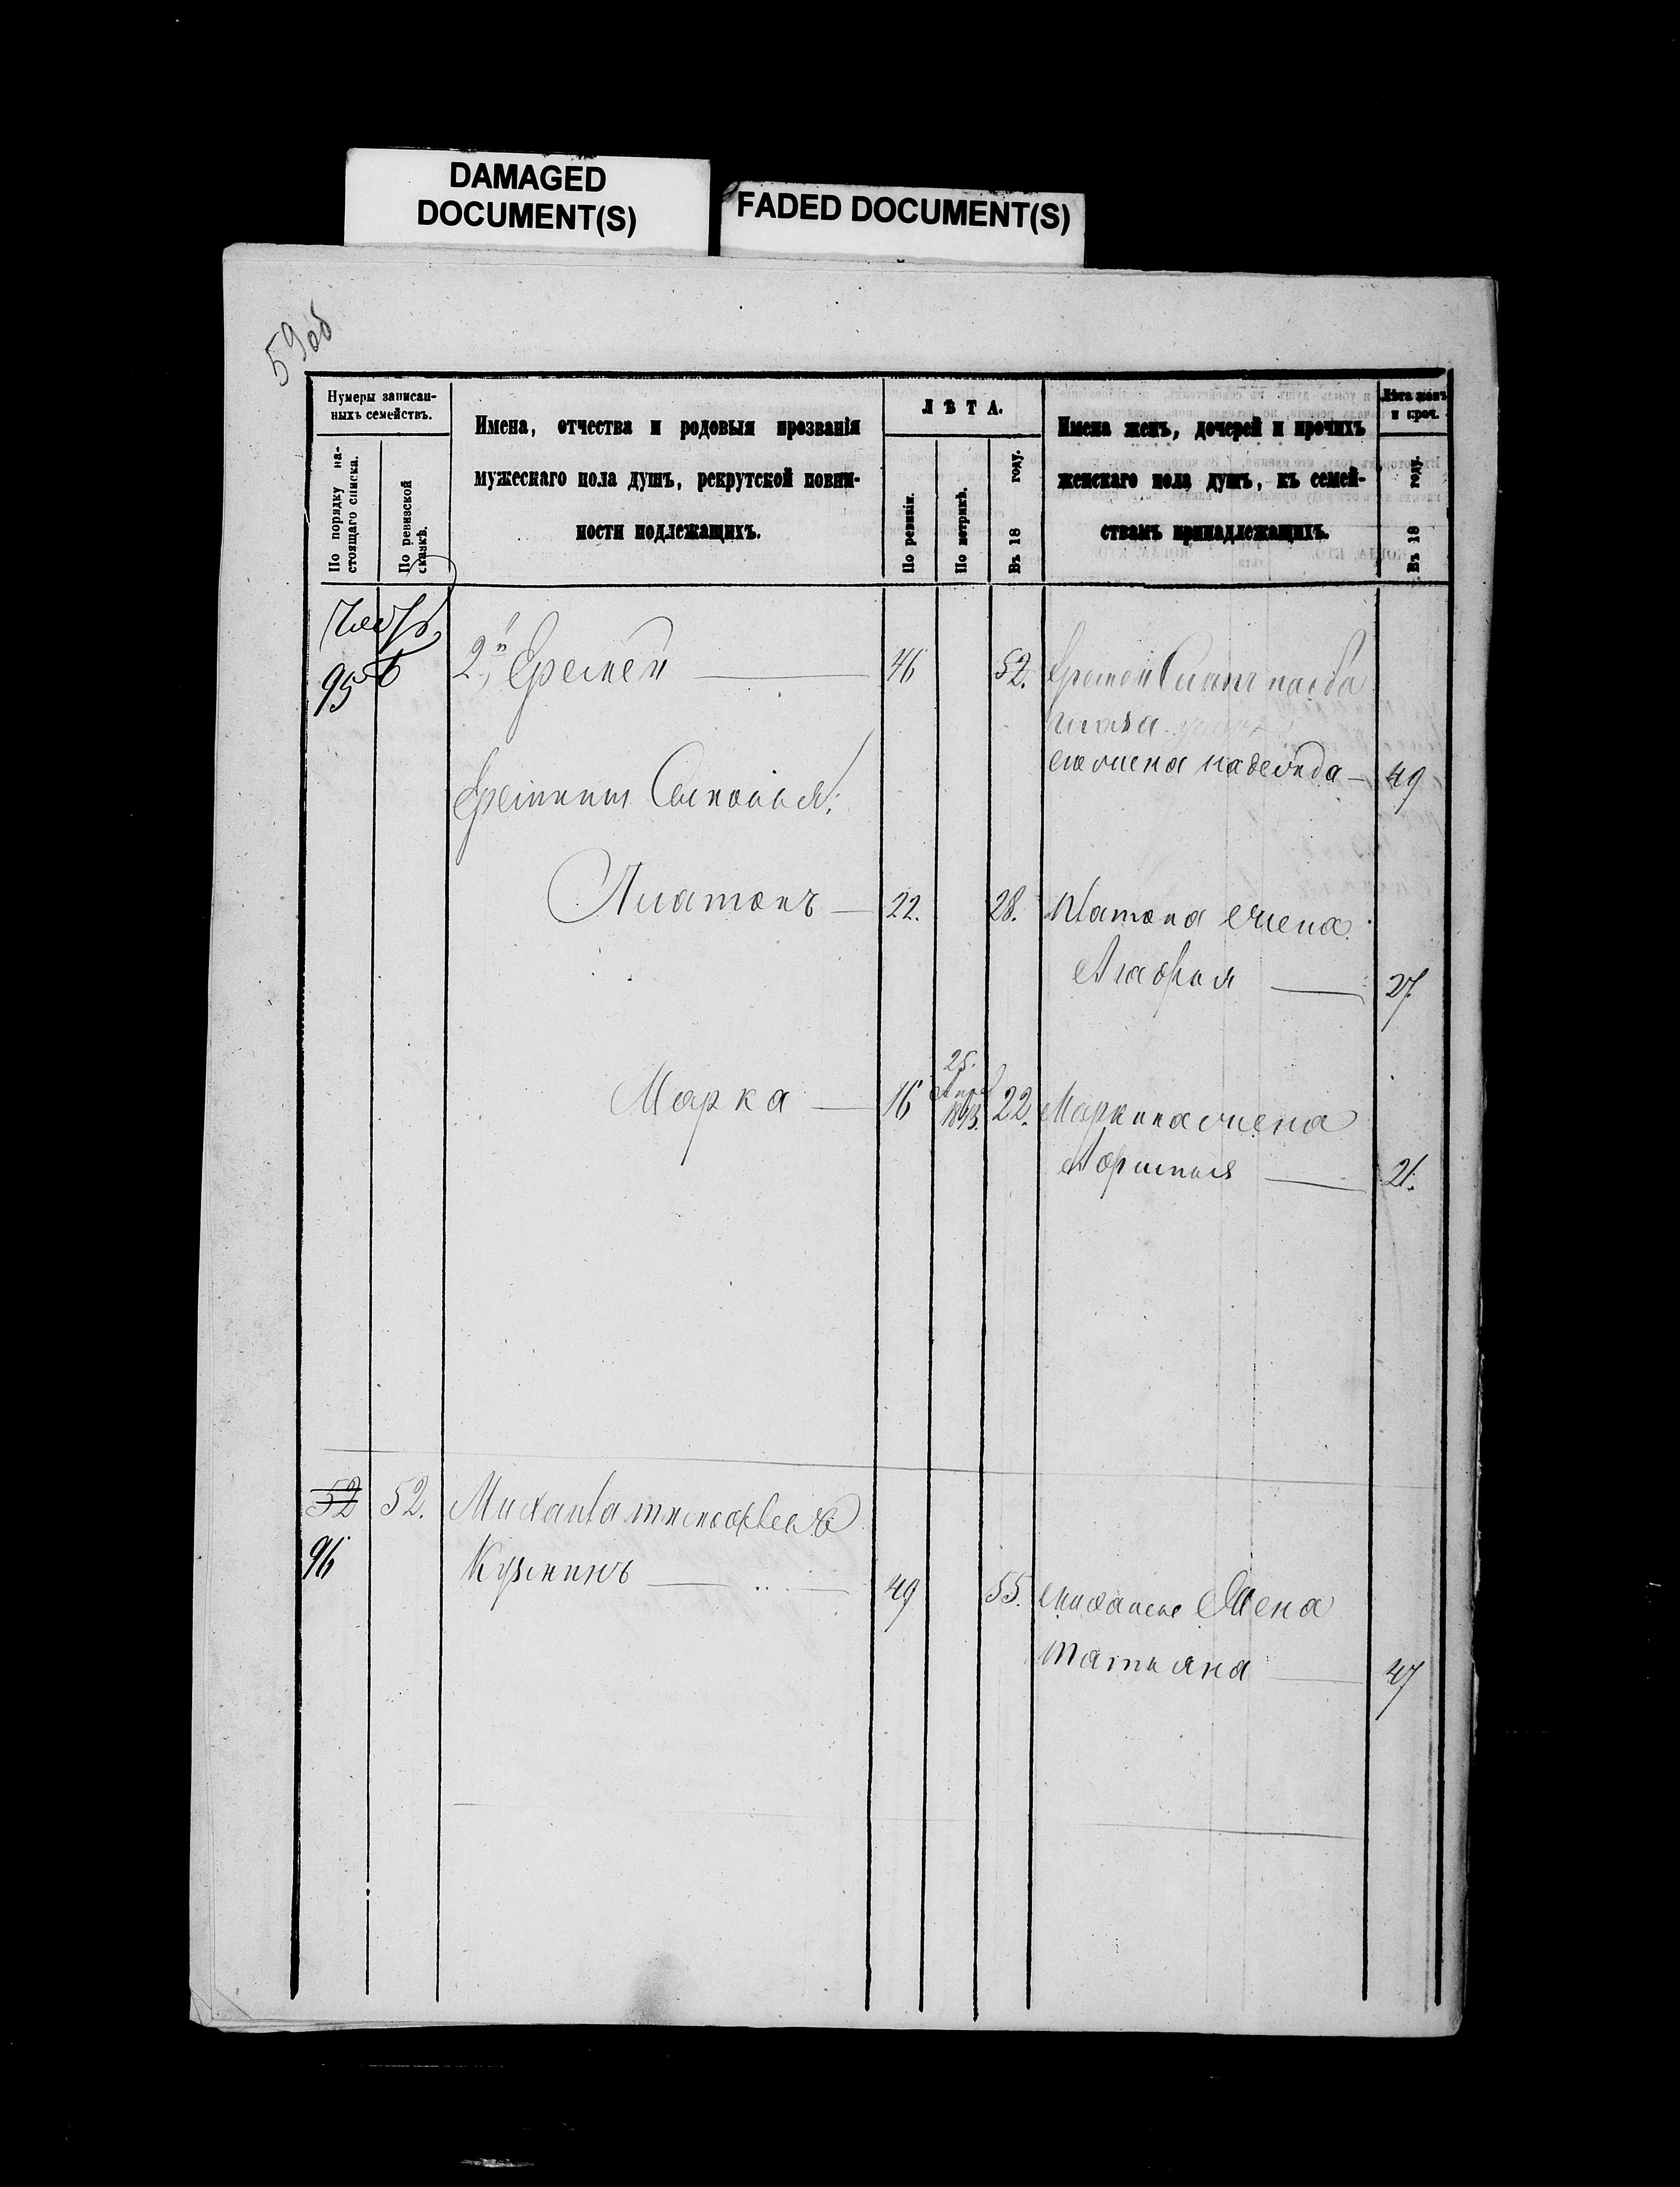 DAMAGED
DOCUMENT(S)
FADED DOCUMENT(S)
59об
Нумеры записан-
ныхъ семействъ.
По порядку на-
стоящаго списка.
По ревизской
сказкѣ.
Имена, отчества и родовыя прозванія
мужескаго пола душъ, рекрутской повин-
ности подлежащихъ.
ЛѢТА.
По ревизіи.
По метрикѣ.
Въ 18 году.
Имена женъ, дочерей и прочихъ
женскаго пола душъ, къ семей-
ствамъ принадлежащихъ.
Лѣта женъ
и проч.
Въ 18 году.
95
2й, Еремей 46 52.
его жена надежда 49
Еремины Сыновья:
Платонъ 22. 28. Платона жена
27
Марка 16 25. 1843. 22. Маркина жена
21.
52 52. Михайла
96 Кузнинъ 49 55. жена
Татьяна 47